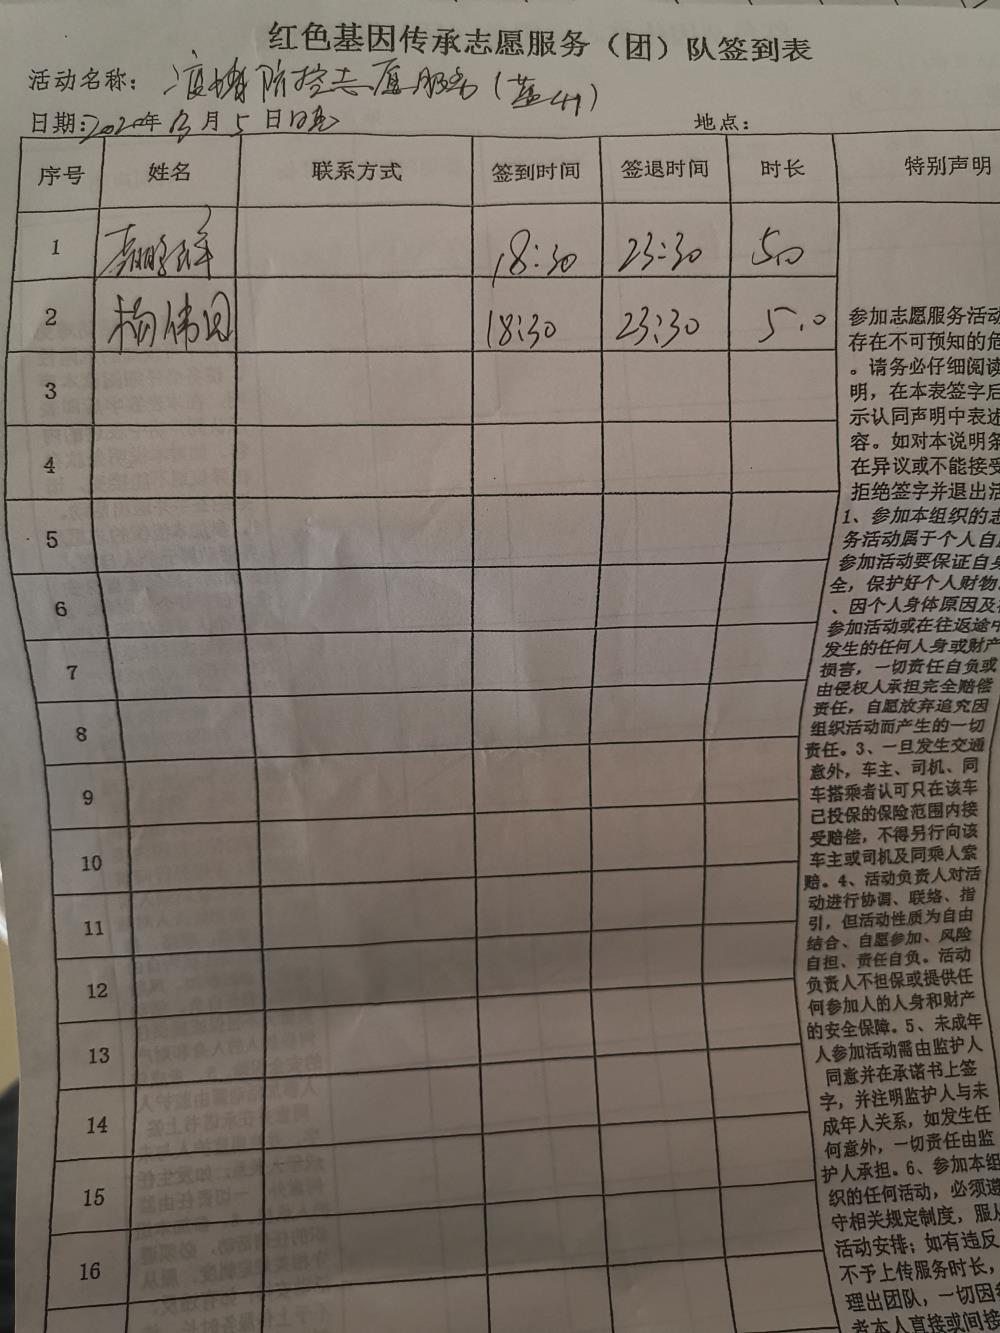 红色基因传承志愿服务（团）队签到表
活动名称： 疫情防控志愿服务（蓝山）
日期: 2020年 月 5 日
地点：
序号 姓名 联系方式 签到时间 签退时间 时长 特别声明
1 18:30 23:30 5.0
2 杨伟国 18:30 23:30 5.0
3
4
5
6
7
8
9
10
11
12
13
14
15
16
参加志愿服务活动
存在不可预知的危
。请务必仔细阅读
明，在本表签字后
示认同声明中表述
容。如对本说明条
在异议或不能接受
拒绝签字并退出活
1、参加本组织的志
务活动属于个人自
参加活动要保证自身
全，保护好个人财物
、因个人身体原因及
参加活动或在往返途中
发生的任何人身或财产
损害，一切责任自负或
由侵权人承担完全赔偿
责任，自愿放弃追究因
组织活动而产生的一切
责任。3、一旦发生交通
意外，车主、司机、同
车搭乘者认可只在该车
已投保的保险范围内接
受赔偿，不得另行向该
车主或司机及同乘人索
赔。4、活动负责人对活
动进行协调、联络、指
引，但活动性质为自由
结合、自愿参加、风险
自担、责任自负。活动
负责人不担保或提供任
何参加人的人身和财产
的安全保障。5、未成年
人参加活动需由监护人
同意并在承诺书上签
字，并注明监护人与未
成年人关系，如发生任
何意外，一切责任由监
护人承担。6、参加本组
织的任何活动，必须遵
守相关规定制度，服从
活动安排；如有违反
不予上传服务时长，
理出团队，一切因
者本人直接或间接